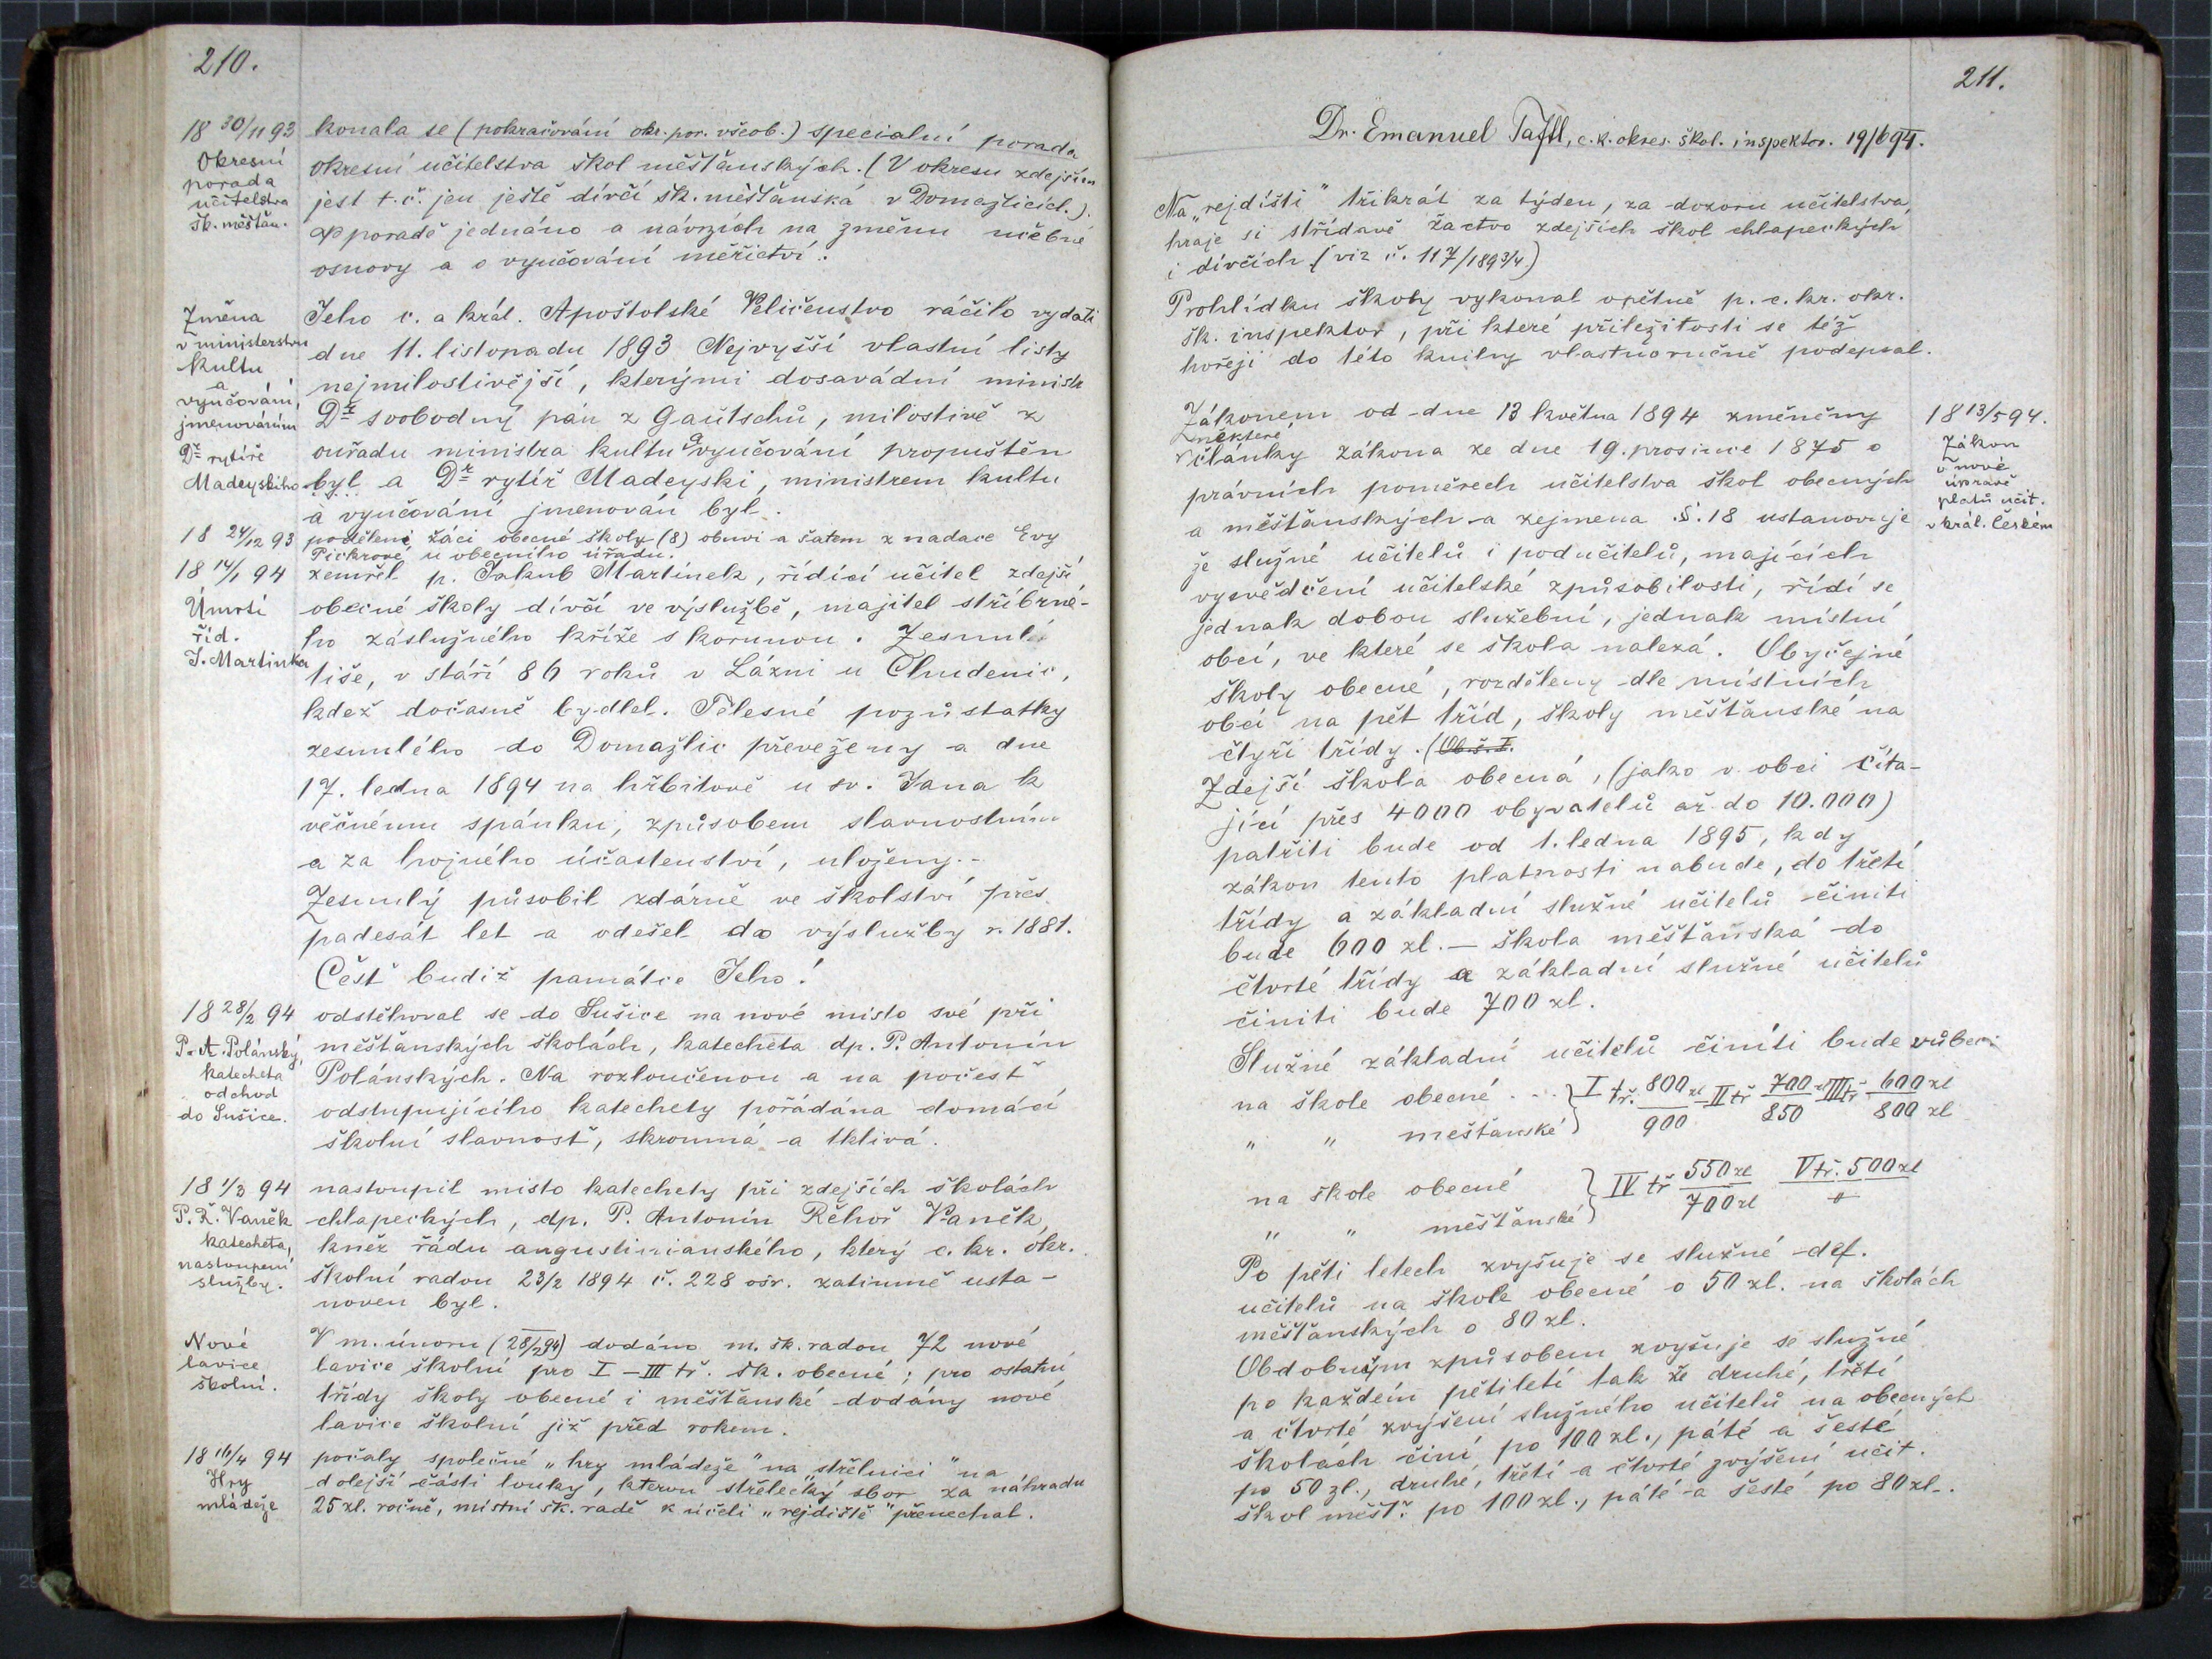 210.
18 30/11 93 konala se (pokračování okr. por. všeob.) specialní porada
Okresní
porada
učitelstva
šk. měšťan.
okresní učitelstva škol měšťanských. (V okresu zdejším
jest t. č. jen ještě dívčí šk. měšťanská v Domažlicích.).
poradě jednáno a návrzích na změnu učebné
osnovy a o vyučování měřictví.
Změna
v ministerstvu
kultu
a
vyučování,
jmenováním
Dr. rytíře
Madeyského
Jeho c. a král. Apoštolské Veličenstvo ráčilo vydati
dne 11. listopadu 1893 Nejvyšší vlastní listy
nejmilostivější, kterými dosavádní ministr
Dr svobodný pán z Gautschů, milostivě z
ouřadu ministra kultu a vyučování propuštěn
byl a Dr rytíř Madeyski, ministrem kultu
a vyučování jmenován byl.
18 24/12 93 poděleni žáci obecné školy (8) obuví a šatem z nadace Evy
Pickrové u obecního úřadu.
18 14/1 94 zemřel p. Jakub Martínek, řídící učitel zdejší
Úmrtí
říd.
J. Martínka
obecné školy dívčí ve výslužbě, majitel stříbrné-
ho záslužného kříže s korunou. Zesnul
tiše, v stáří 86 roků v Lázni u Chudenic,
kdež dočasně bydlel. Tělesné pozůstatky
zesnulého do Domažlic převeženy a dne
17. ledna 1894 na hřbitově u sv. Jana k
věčnému spánku, způsobem slavnostním
a za hojného účastenství, uloženy.-
Zesnulý působil zdárně ve školství přes
padesát let a odešel do výslužby r. 1881.
Čest' budiž památce Jeho!
18 28/2 94 odstěhoval se do Sušice na nové místo své při
P. A. Polánský,
katecheta
odchod
do Sušice.
měšťanských školách, katecheta dp. P. Antonín
Polánských. Na rozloučenou a na počest'
odstupujícího katechety pořádána domácí
školní slavnost', skromná a tklivá.
18 1/3 94 nastoupil místo katechety při zdejších školách
P. Ř. Vaněk
katecheta,
nastoupení
služby.
chlapeckých, dp. P. Antonín Řehoř Vaněk,
kněz řádu augustinianského, který c. kr. okr.
školní radou 23/2 1894 č. 228 ošr. zatimně usta-
noven byl.
Nové
lavice
školní.
V m. únoru (28/2 94) dodáno m. šk. radou 72 nové
lavice školní pro I – III tř. šk. obecné; pro ostatní
třídy školy obecné i měšťanské dodány nové
lavice školní již před rokem.
18 16/4 94 počaly společné „hry mládeže" na „střelnici" na
Hry
mládeže
dolejší části louky, kterou střelecký sbor za náhradu
25 zl. ročně, místní šk. radě k účeli „rejdiště" přenechal.
211.
Dr. Emanuel Taftl, c. k. okres. škol. inspektor. 19/6 94.
Na „rejdišti" třikrát za týden, za dozoru učitelstva,
hraje si střídavě žactvo zdejších škol chlapeckých
i dívčích (viz č. 117/1893/4)
Prohlídku školy vykonal opětně p. c. kr. okr.
šk. inspektor, při které příležitosti se též
hořeji do této knihy vlastnoručně podepsal.
Zákonem od dne 13 května 1894 změněny
některé
články zákona ze dne 19. prosince 1875 o
právních poměrech učitelstva škol obecných
a měšťanských a zejmena §. 18 ustanovuje
že služné učitelů i podučitelů, majících
vysvědčení učitelské způsobilosti, řídí se
jednak dobou služební, jednak místní
obcí, ve které se škola nalezá. Obyčejné
školy obecné, rozděleny dle místních
obcí na pět tříd, školy měšťanské na
čtyři třídy. (Ob. š. I.
Zdejší škola obecná, (jako v obci číta-
jící přes 4000 obyvatelů až do 10.000)
patřiti bude od 1. ledna 1895, kdy
zákon tento platnosti nabude, do třetí
třídy a základní služné učitelů činiti
bude 600 zl. – škola měšťanská do
čtvrté třídy a základní služné učitelů
činiti bude 700 zl.
18 13/5 94.
Zákon
o nové
úpravě
platů učit.
v král. Českém
Služné základní učitelů činiti bude vůbec:
na škole obecné ... } I tř. 800 zl – II tř 700 zl III tř 600 zl
„ „ mešťanské } 900 850 800 zl
na škole obecné } IV tř 550 zl V tř. 500 zl
„ „ měšťanské } 700 zl „
Po pěti letech zvyšuje se služné def.
učitelů na škole obecné o 50 zl. na školách
měšťanských o 80 zl.
Obdobným způsobem zvyšuje se služné
po každém pětiletí tak že druhé, třetí
a čtvrté zvýšení služného učitelů na obecných
školách činí po 100 zl., páté a šesté
po 50 zl., druhé, třetí a čtvrté zvýšení učit.
škol měšť. po 100 zl., páté a šesté po 80 zl.